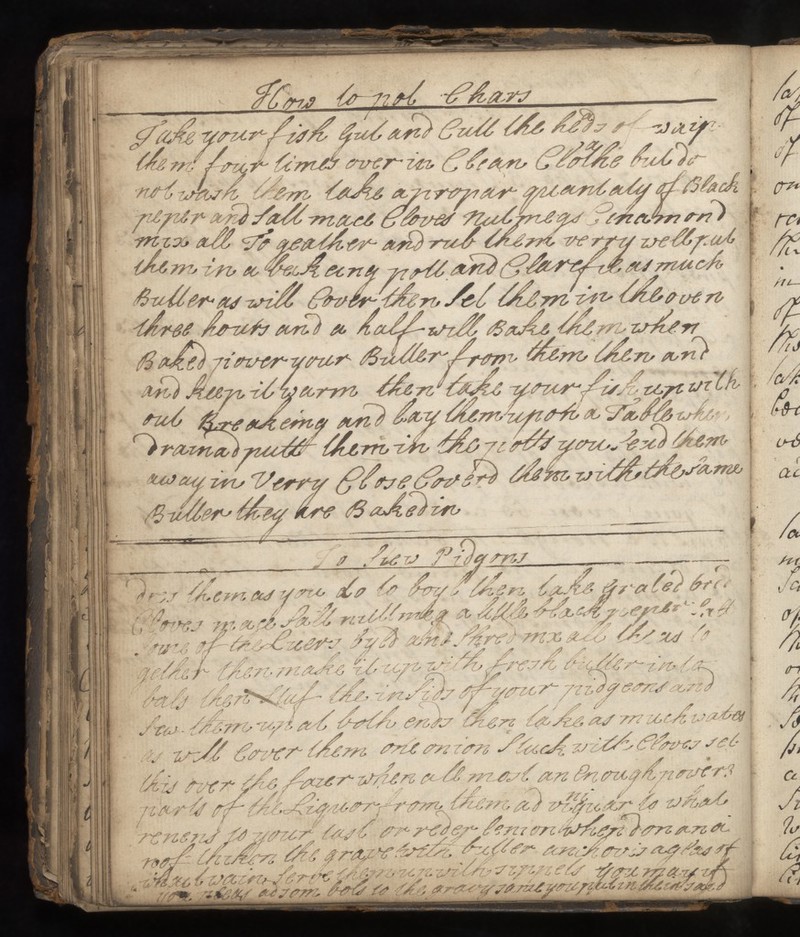 How to pot Chars
Take your fish Gut and Cutt the heds of waip
them four times over in Clean Clothe but do
not wash them take a propar quantaty of Black
peper and Salt mace Cloves nutmegs Cinamond
mix all To geather and rub them verry well put
them in a bakeing pott and Clarefie as much
Butter as will Cover then Set them in the oven
three hours and a half will Bake them when
Baked power your Butter from them then and
and keep it warm then take your fish up with
out Breakeing and Lay them upon a Table when
Drainad putt them in the potts you Send them
away in Verry Close Coverd them with the Same
Butter they are Baked in
To Stew Pidgons
dres them as you do to boyl then take grated
Cloves mace Salt nuttmeg a little black peper
Some of the Livers byld and Shred mix all thes to
gether then make it up with fresh butter in to
bals then Stuf the insids of your pidgeons and
Sew them up at both ends then take as much water
as will Cover them one onion Stuck with Cloves set
this over the faier when all most an Enough power
parts of the Liquor from them ad viniguar to what
remens to your tast or reder lemon when don and
thiken the grave with butter anchovis a glas of
whait wain Serve them up with sippets you may if
you pleas ad som bols to the gravy same you put in their